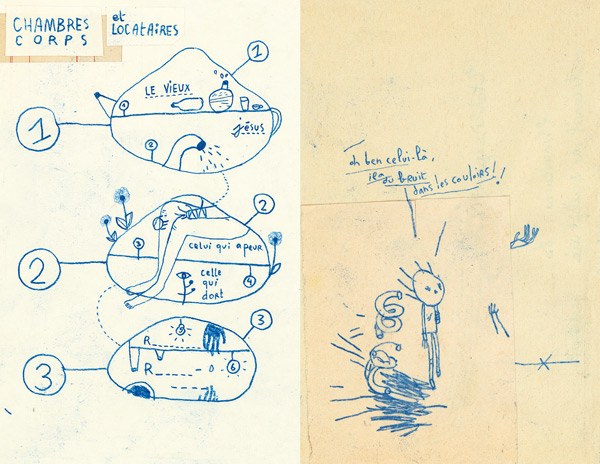 CHAMBRES
CORPS
et
LOCATAIRES
1
LE VIEUX
1
1
jésus
2
2
2
3
celui qui a peur
celle
qui
dort
4
3
3
5
R
R
6
oh ben celui-là,
il a du bruit
dans les couloirs!